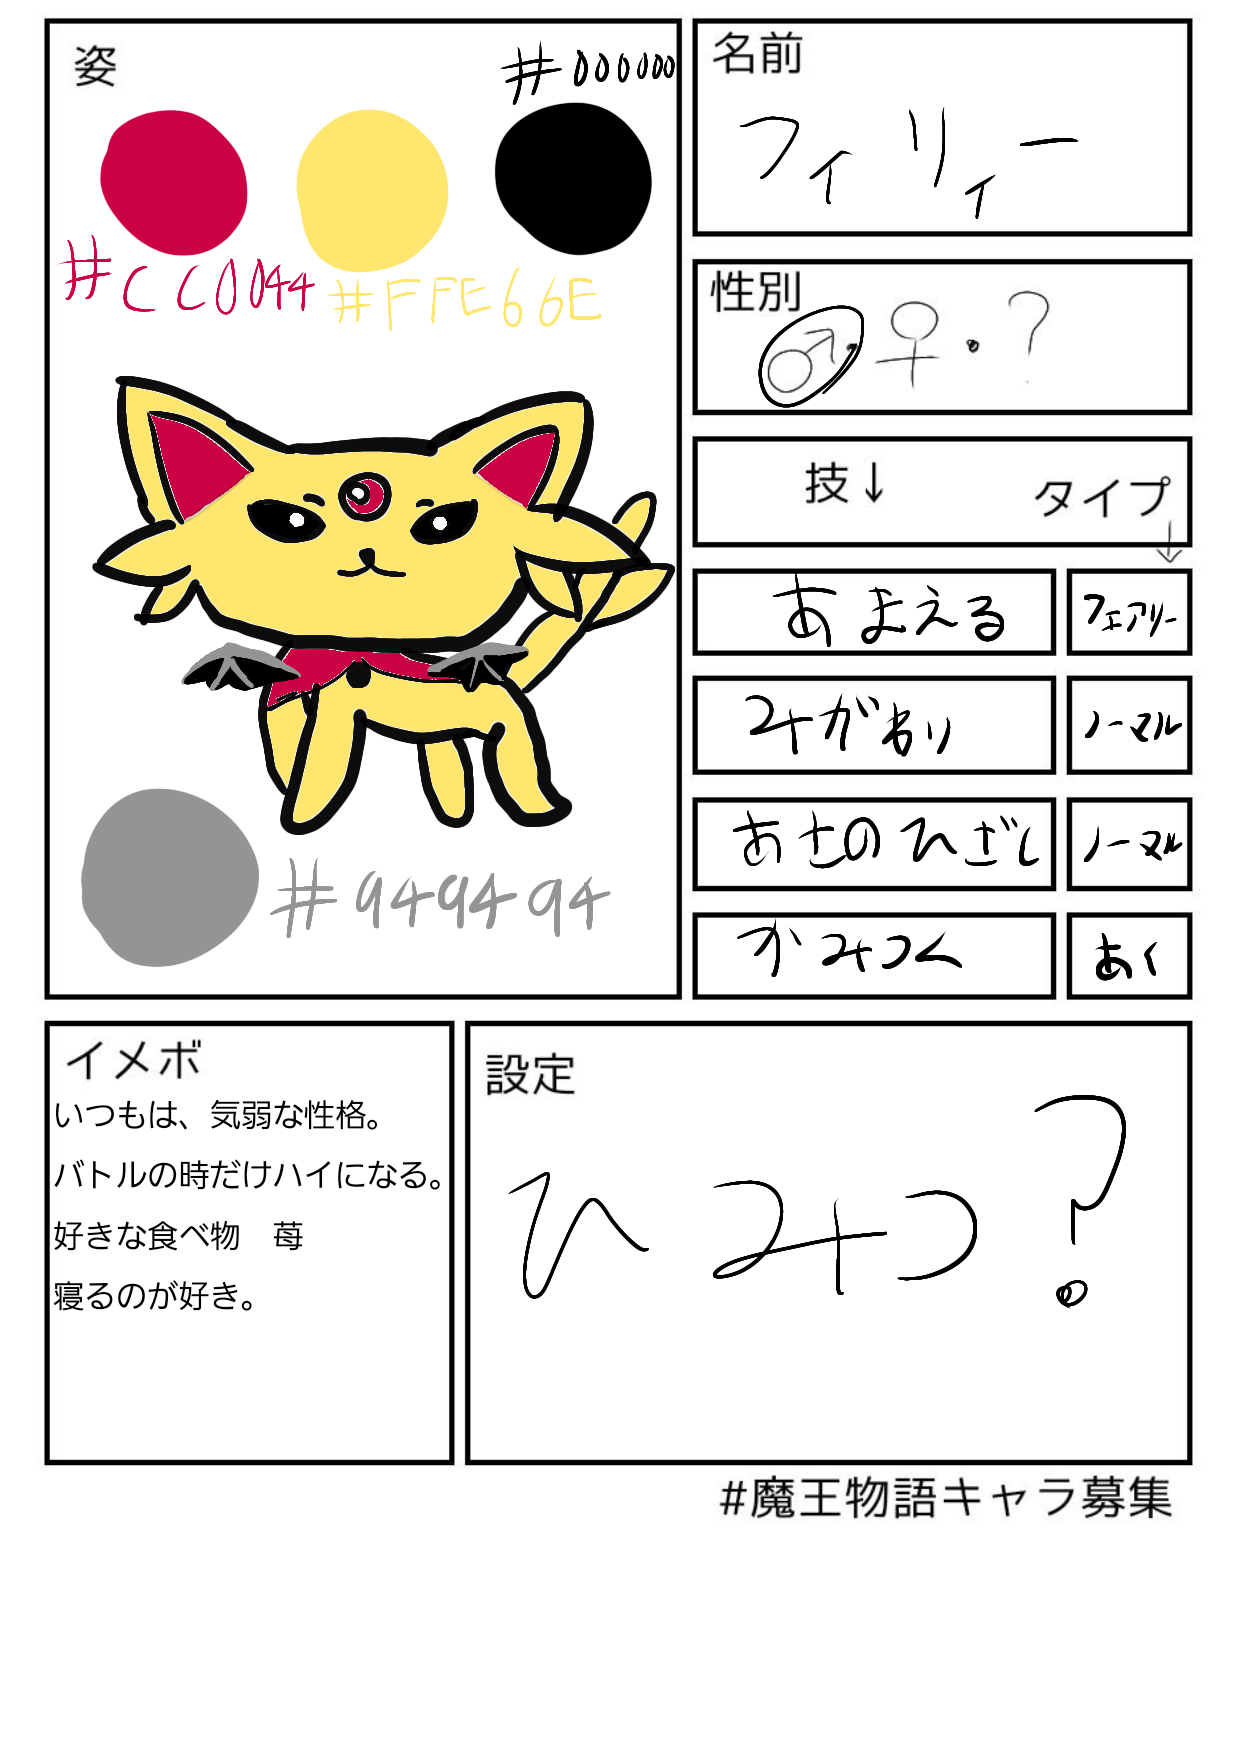 姿
#000000
#CC0044
#FFE66E
#949494
名前
フィリィー
性別
♂・♀・?
技↓ タイプ↓
あまえる フェアリー
みがわり ノーマル
あさのひざし ノーマル
かみつく あく
イメボ
いつもは、気弱な性格。
バトルの時だけハイになる。
好きな食べ物 苺
寝るのが好き。
設定
ひみつ?
#魔王物語キャラ募集